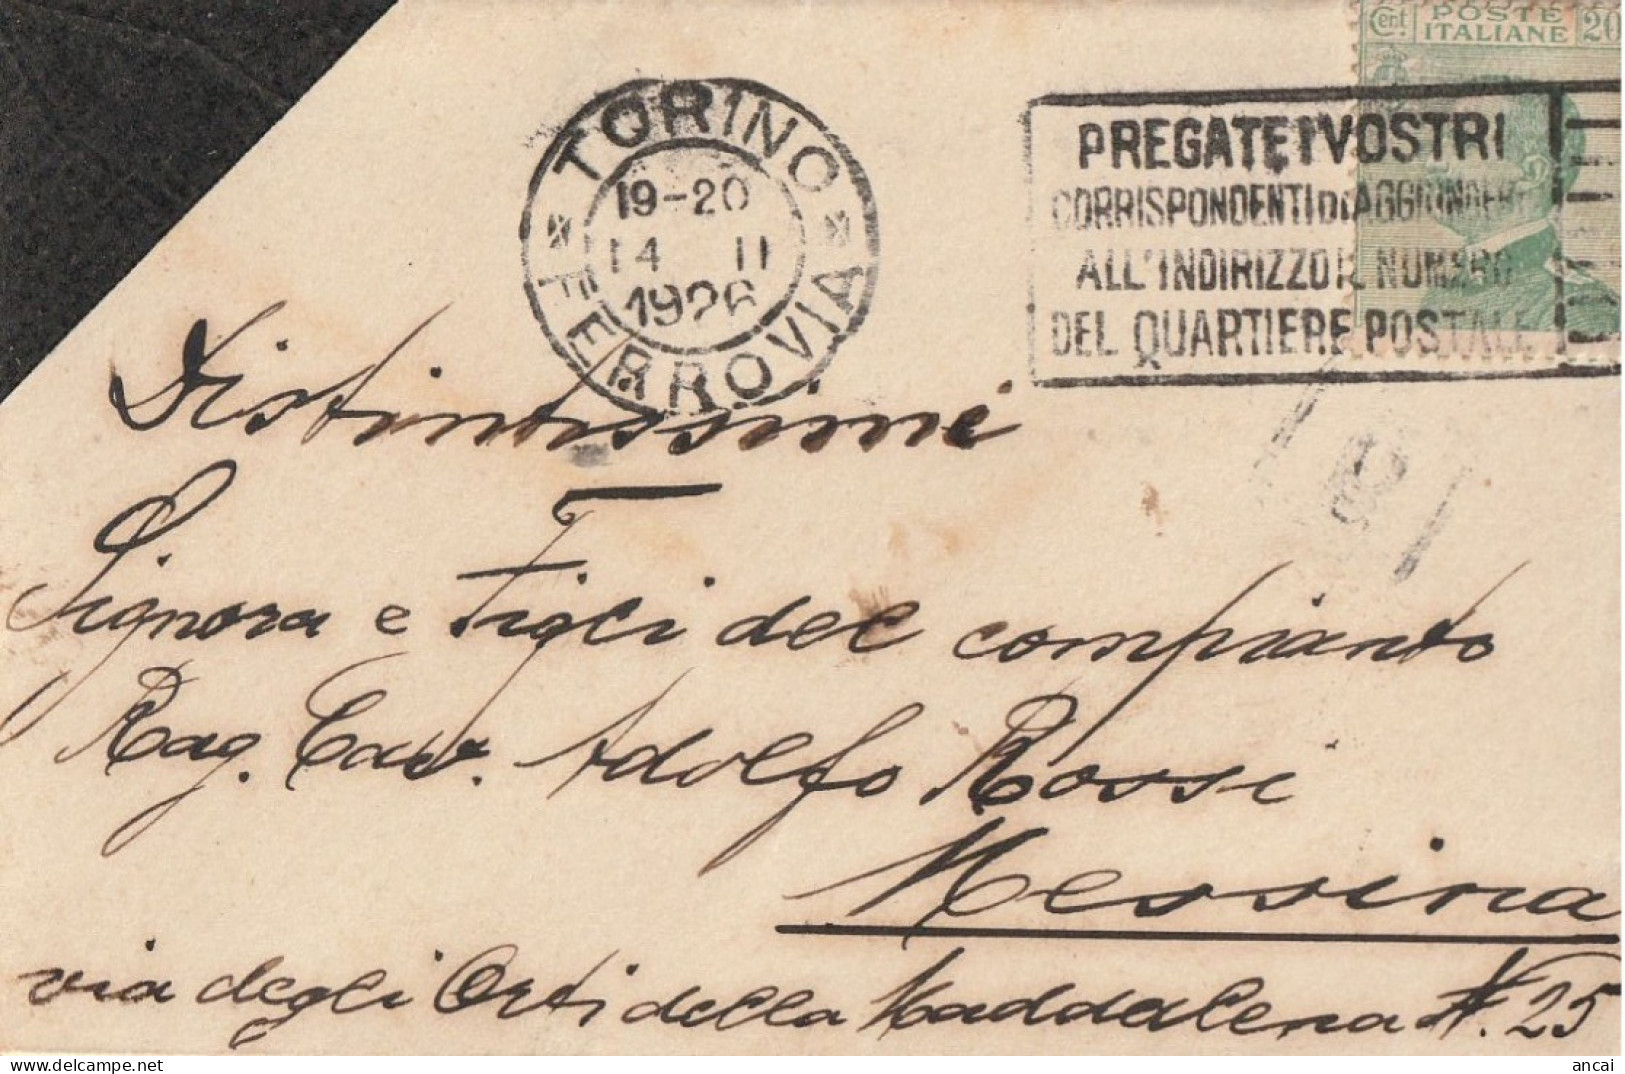 Cent. POSTE ITALIANE 20
TORINO
19-20
14 II
1926
FERROVIA
PREGATE I VOSTRI
CORRISPONDENTI DI AGGIUNGERE
ALL'INDIRIZZO IL NUMERO
DEL QUARTIERE POSTALE
Distintissimi
Signora e Figli del compianto
Rag. Cav. Adolfo Rossi
Messina
via degli Orti della Maddalena N. 25
ancai